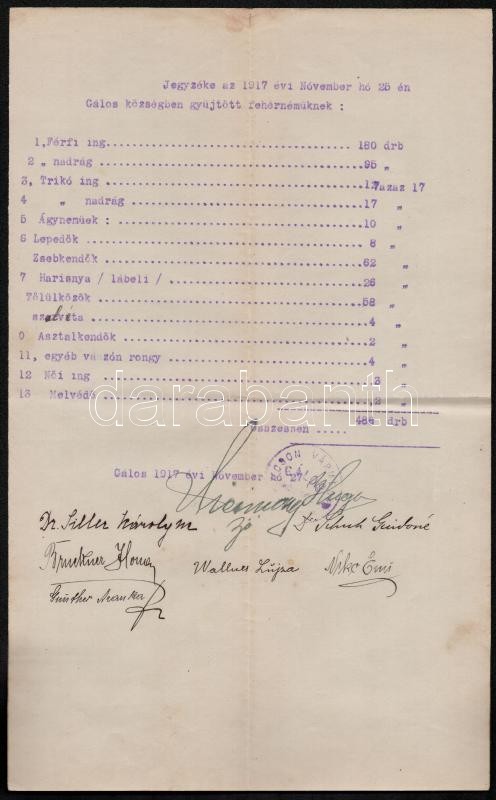 Jegyzéke az 1917 évi Nóvember hó 25 én
Gálos községben gyüjtött fehérnémüknek :
1,Férfi ing............ 180 drb
2 „ nadrág............ 95 „
3, Trikó ing............ 17azaz 17
4 „ nadrág............ 17 „
5 Ágynemüek :............ 10 „
6 Lepedök............ 8 „
Zsebkendök............ 62 „
7 Harisnya / lábeli /............ 26 „
Tölülközök............ 58 „
szalvéta............ 4 „
0 Asztalkendök............ 2 „
11, egyéb vászón rongy............ 4 „
12 Női ing............ 3 „
13 Melvédő............ 2 „
Összesnen ..... 484 drb
darabanth
Gálos 1917 évi November hó 27
Dr. Siller Károlyné
Bruckner Ilona
Wallner Lujza
Günther Aranka